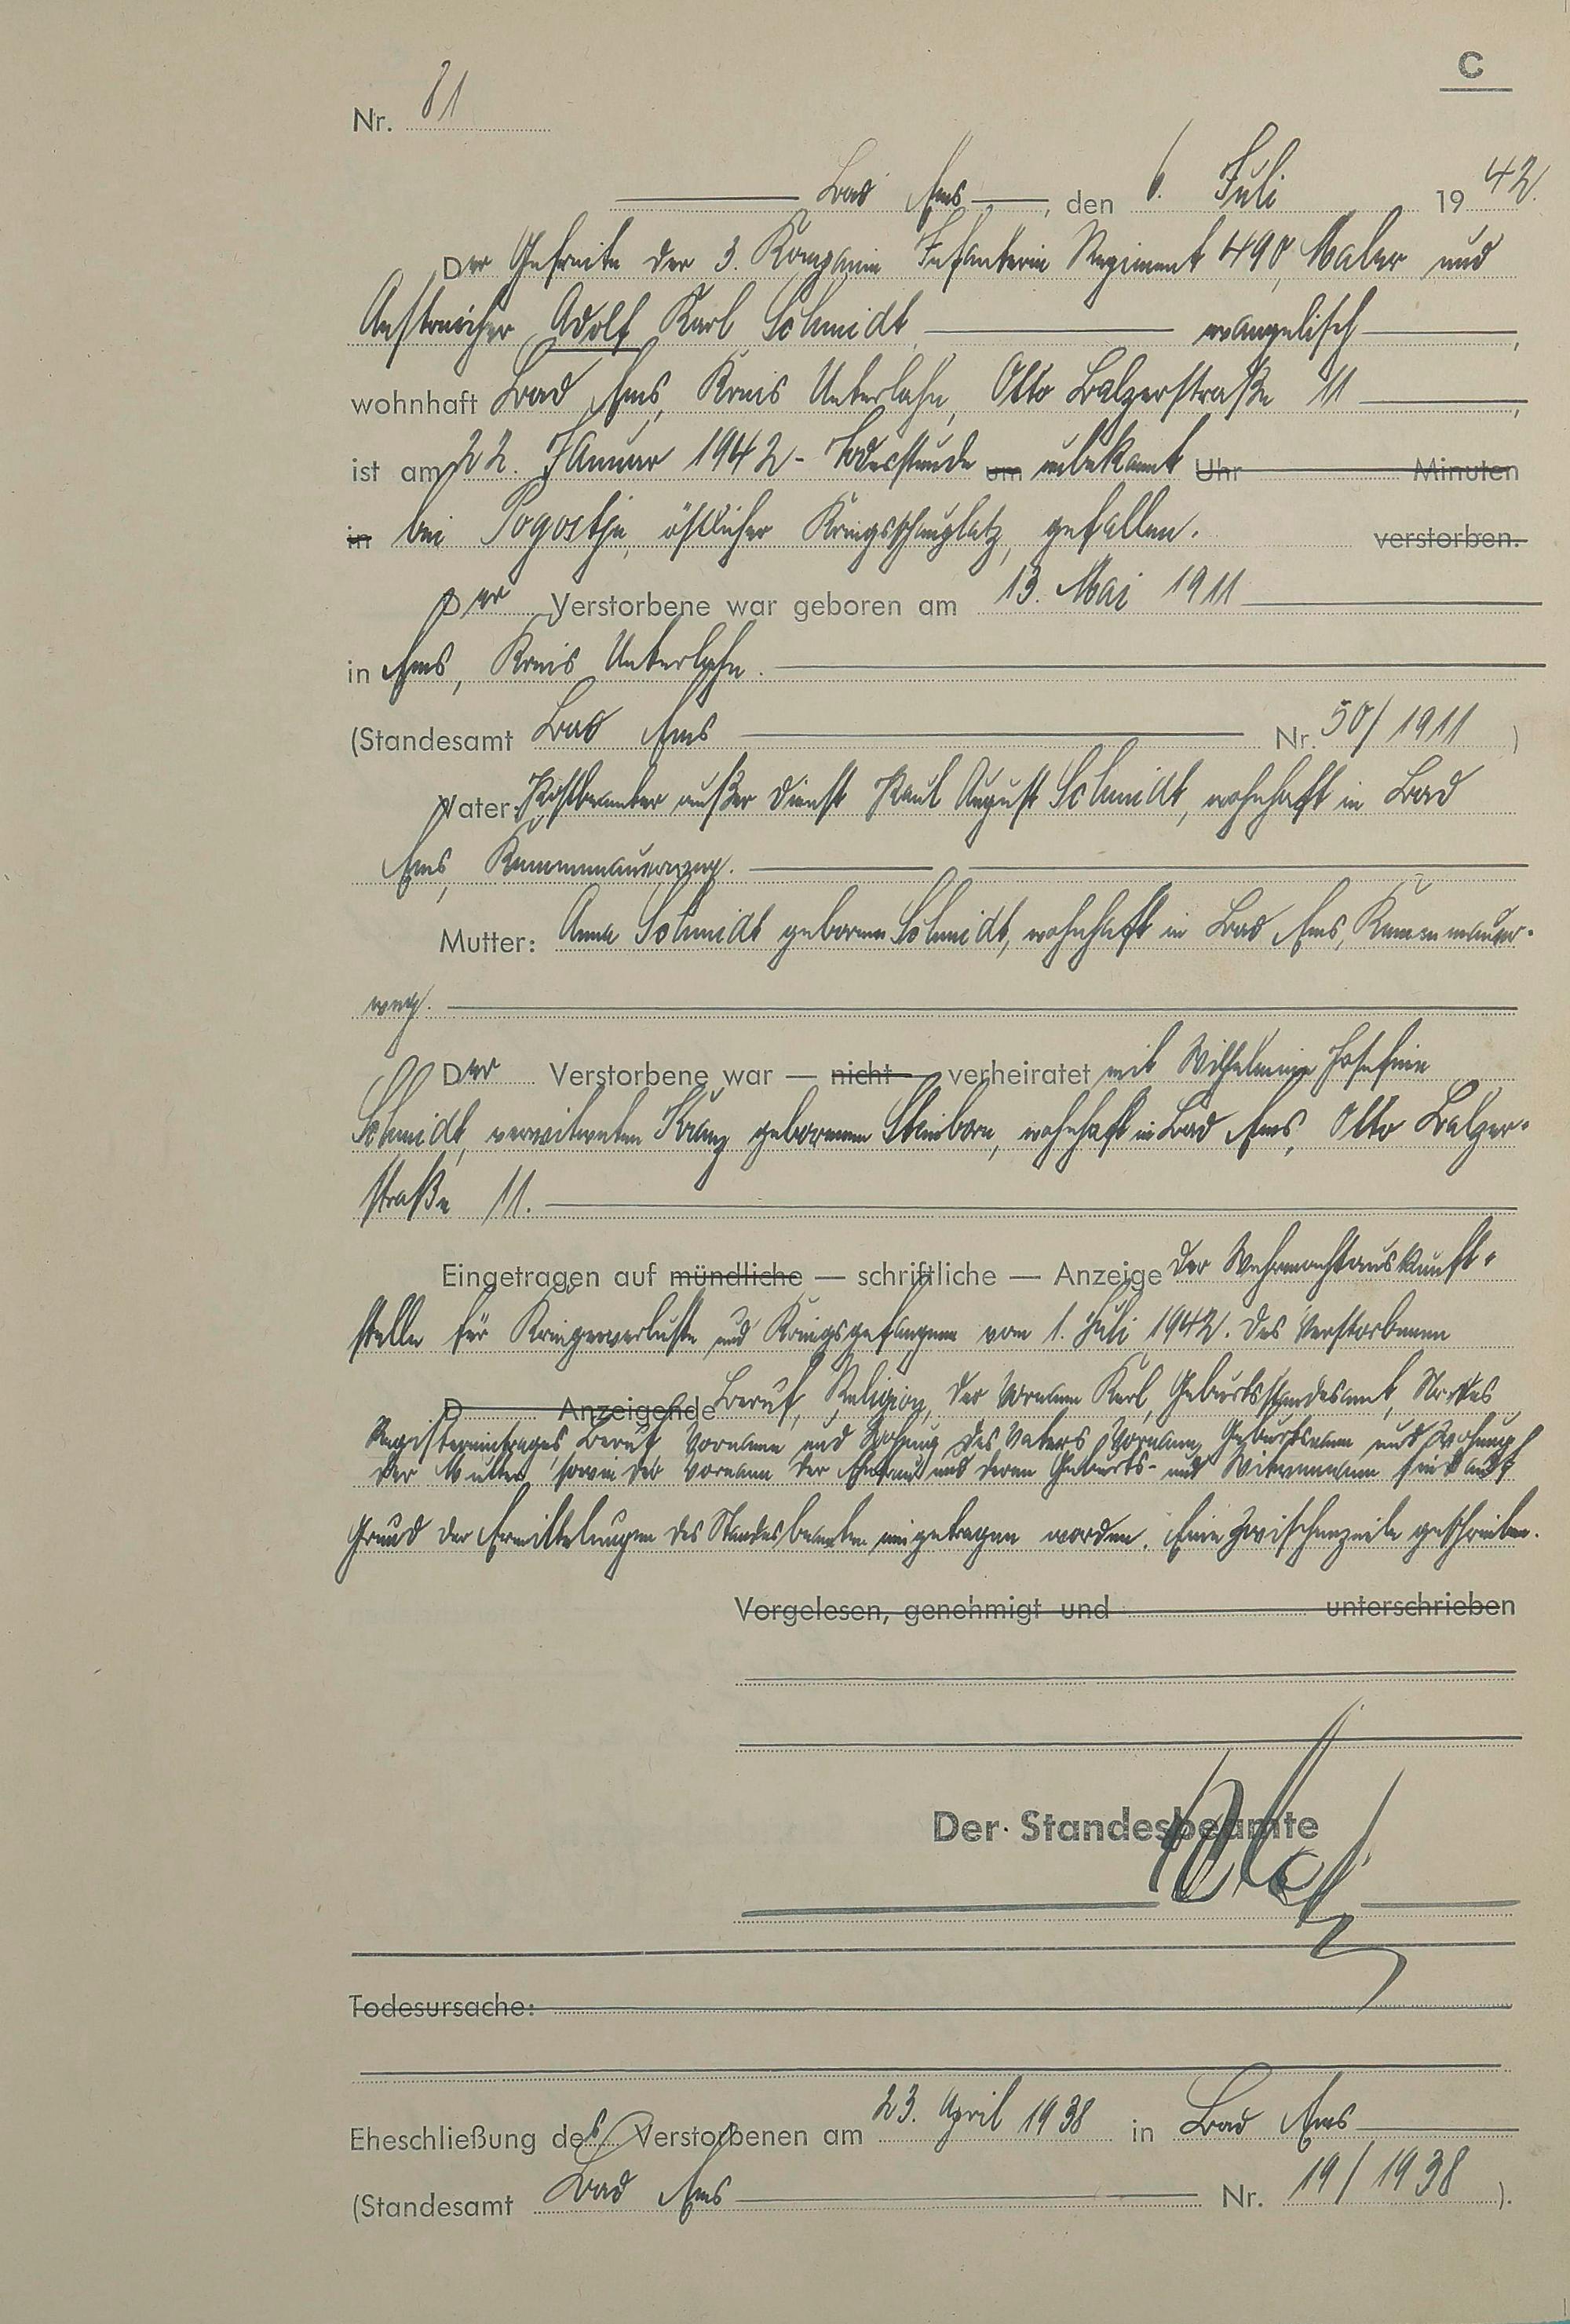 C
Nr. 81
Bad Ems, den 6. Juli 1942.
Der Gefreite der 3. Kompanie Infanterie Regiment 490, Maler und
Anstreicher Adolf Karl Schmidt evangelisch,
wohnhaft Bad Ems, Kreis Unterlahn, Otto Balzerstraße 11,
ist am 22. Januar 1942 - Todesstunde um unbekannt Uhr Minuten
in bei Pogostje, östlicher Kriegsschauplatz, gefallen. verstorben.
Der Verstorbene war geboren am 13. Mai 1911
in Ems, Kreis Unterlahn.
(Standesamt Bad Ems Nr. 50/1911)
Vater: Postbeamter außer Dienst Karl August Schmidt, wohnhaft in Bad
Ems,
Mutter: Anna Schmidt geborene Schmidt, wohnhaft in Bad Ems,
weg.
Der Verstorbene war — nicht — verheiratet mit Wilhelmine Josefine
Schmidt, verwitweten Kranz geborenen Steinborn, wohnhaft in Bad Ems, Otto Balzer-
straße 11.
Eingetragen auf mündliche — schriftliche — Anzeige der Wehrmachtauskunft-
stelle für Kriegerverluste und Kriegsgefangene vom 1. Juli 1942. Des Verstorbenen
D Anzeigende Beruf, Religion, der Vorname Karl, Geburtsstandesamt, Nr. des
Registereintrages, Beruf, Vorname und Wohnung des Vaters, Vorname, Geburtsname und Wohnung
der Mutter, sowie der Vorname der Ehefrau und deren Geburts- und Witwenname sind auf
Grund der Ermittelungen des Standesbeamten eingetragen worden. Eine Zwischenzeile geschrieben.
Vorgelesen, genehmigt und unterschrieben
Der Standesbeamte
Todesursache:
Eheschließung des Verstorbenen am 23. April 1938 in Bad Ems
(Standesamt Bad Ems Nr. 19/1938).